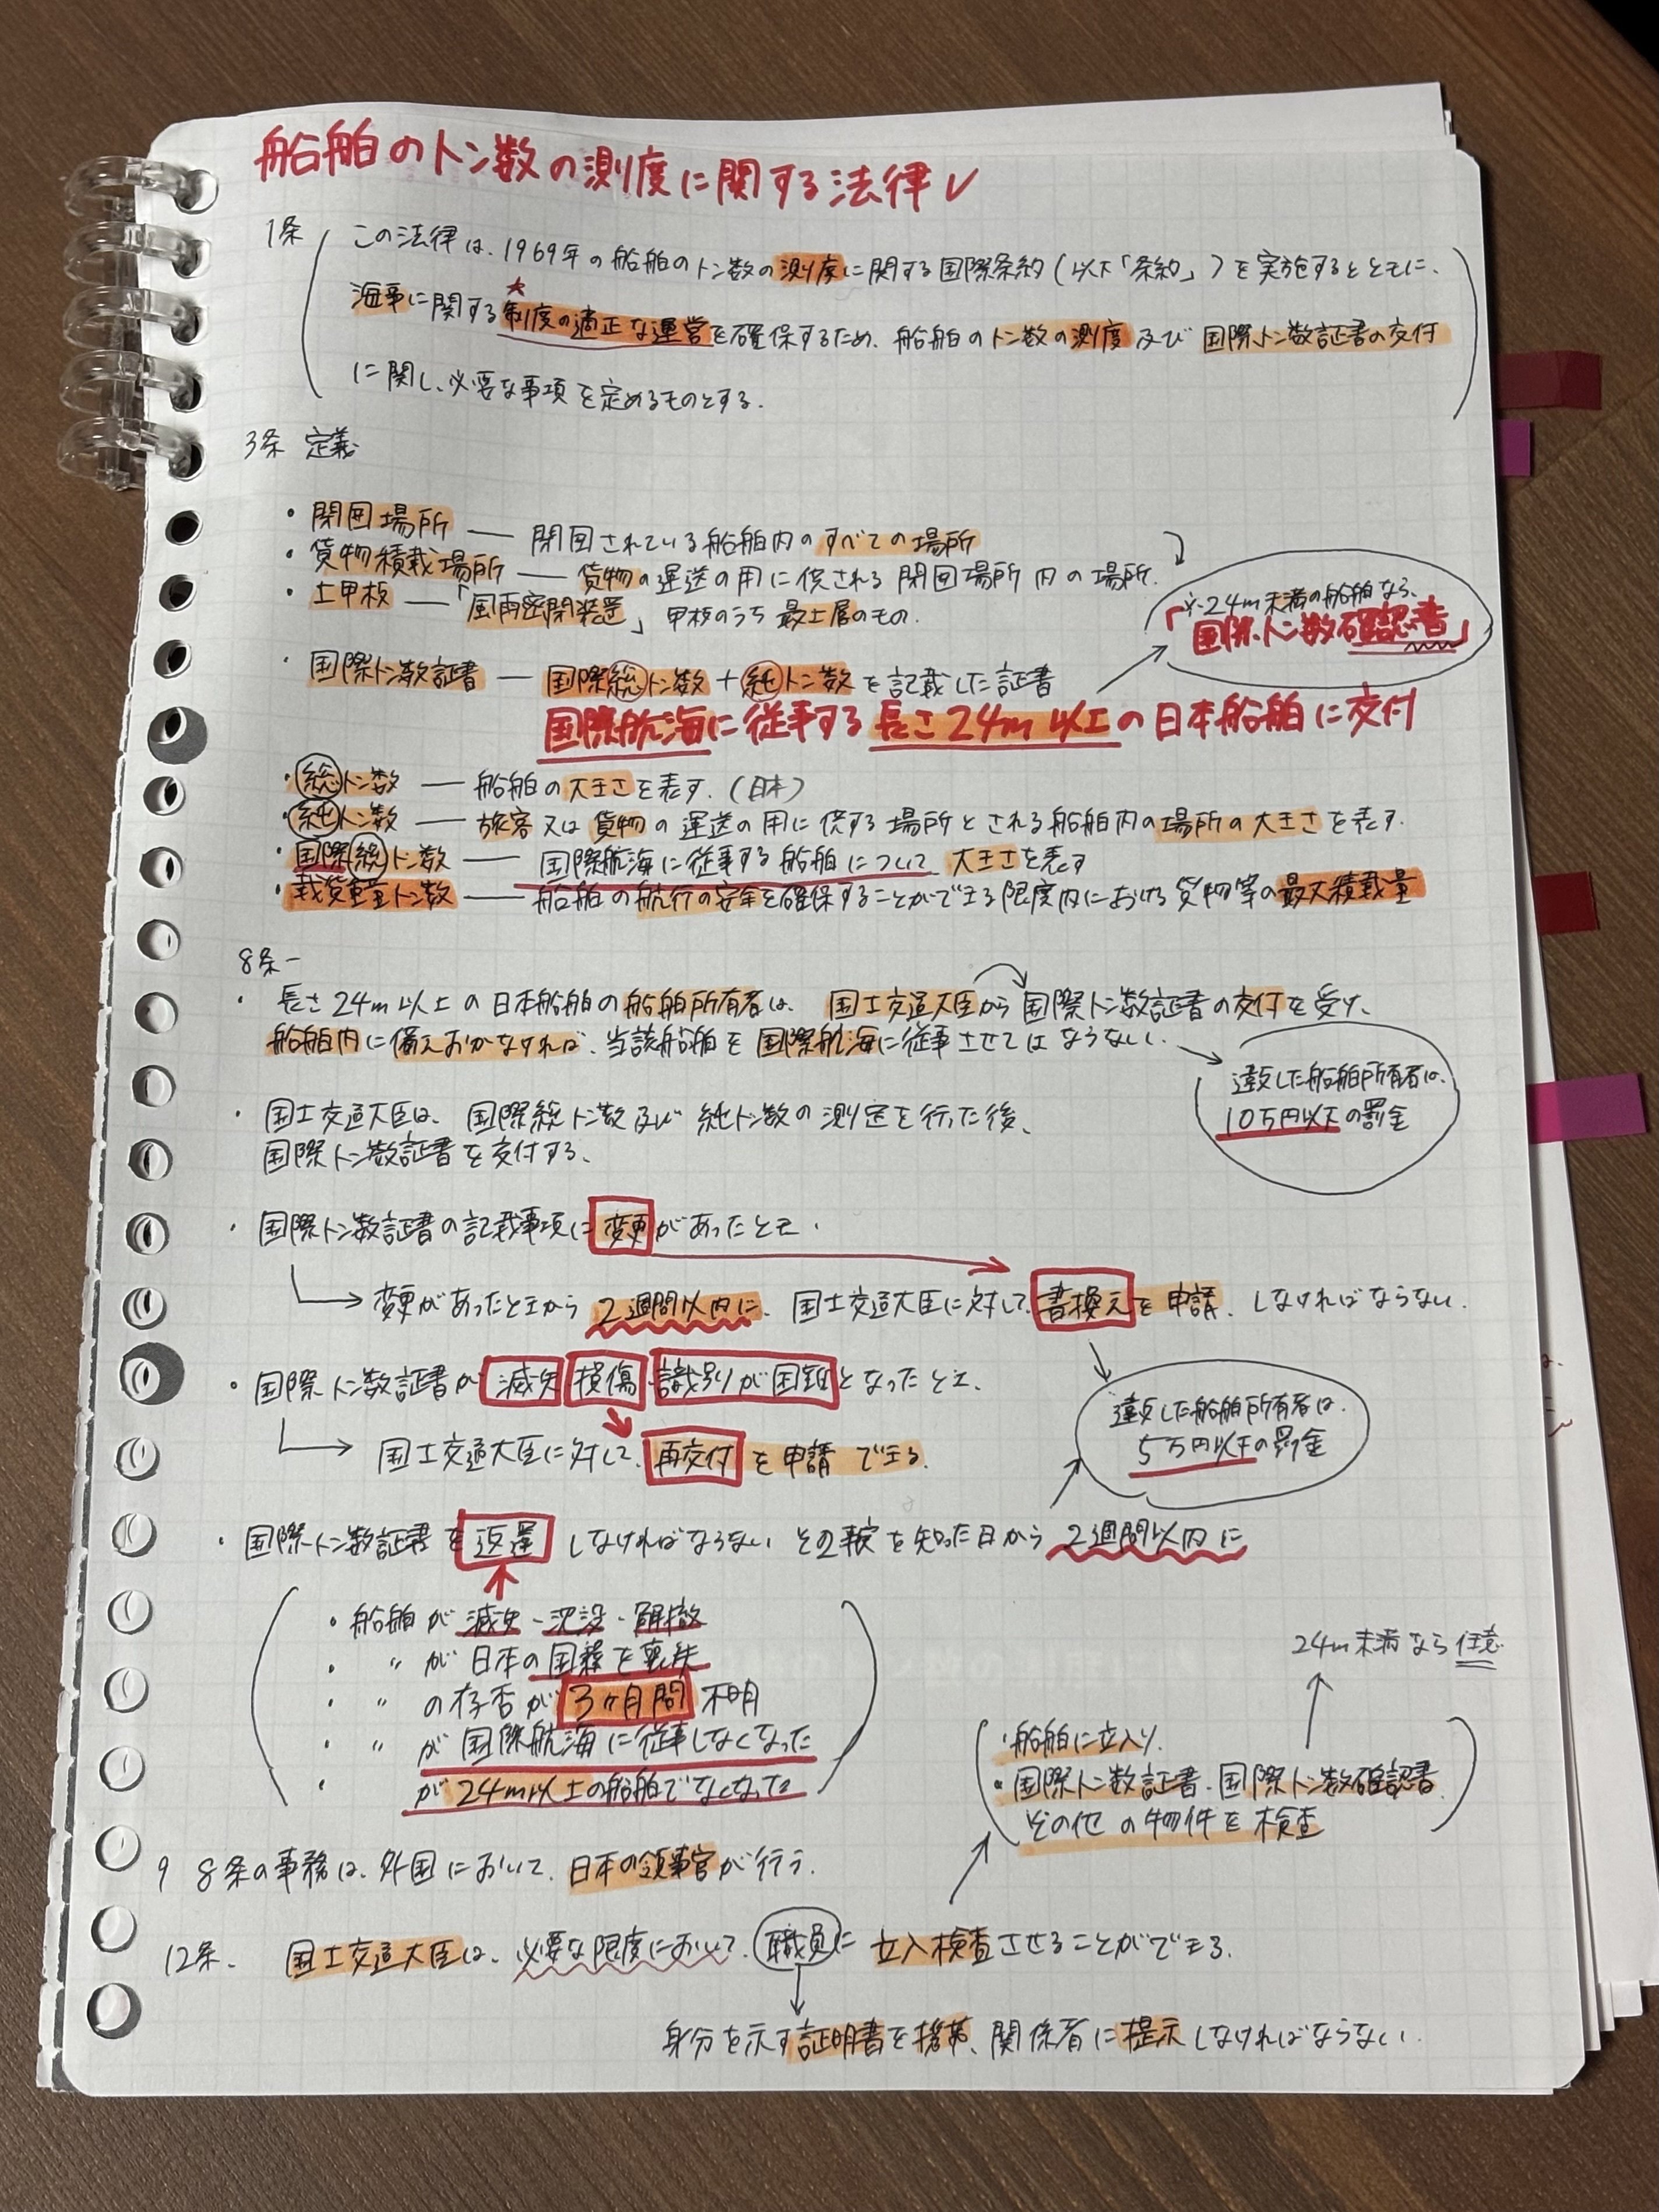 船舶のトン数の測度に関する法律✓
1条 この法律は、1969年の船舶のトン数の測度に関する国際条約(以下「条約」)を実施するとともに、
海事に関する制度の適正な運営を確保するため、船舶のトン数の測度及び国際トン数証書の交付
に関し、必要な事項を定めるものとする.
3条 定義
・閉囲場所 ― 閉囲されている船舶内のすべての場所
・貨物積載場所 ― 貨物の運送の用に供される閉囲場所内の場所.
・上甲板 ―「風雨密閉装置」甲板のうち最上層のもの.
※24m未満の船舶なら、
「国際トン数確認書」
・国際トン数証書 ― 国際総トン数+純トン数を記載した証書
国際航海に従事する長さ24m以上の日本船舶に交付
・総トン数 ― 船舶の大きさを表す.(日本)
・純トン数 ― 旅客又は貨物の運送の用に供する場所とされる船舶内の場所の大きさを表す.
・国際総トン数 ― 国際航海に従事する船舶について大きさを表す
・載貨重量トン数 ― 船舶の航行の安全を確保することができる限度内における貨物等の最大積載量
8条―
・長さ24m以上の日本船舶の船舶所有者は、国土交通大臣から国際トン数証書の交付を受け、
船舶内に備えおかなければ、当該船舶を国際航海に従事させてはならない.
違反した船舶所有者は、
10万円以下の罰金
・国土交通大臣は、国際総トン数及び純トン数の測定を行った後、
国際トン数証書を交付する、
・国際トン数証書の記載事項に変更があったとき.
変更があったときから2週間以内に、国土交通大臣に対して、書換えを申請、しなければならない.
・国際トン数証書が滅失 損傷 識別が困難となったとき、
国土交通大臣に対して、再交付を申請できる.
違反した船舶所有者は、
5万円以下の罰金
・国際トン数証書を返還しなければならない その事実を知った日から2週間以内に
・船舶が滅失・沈没・解撤
・〃が日本の国籍を喪失
・〃の存否が3ヶ月間不明
・〃が国際航海に従事しなくなった
・が24m以上の船舶でなくなった
24m未満なら任意
・船舶に立入り、
・国際トン数証書、国際トン数確認書、
その他の物件を検査
9 8条の事務は、外国において、日本の領事官が行う.
12条、国土交通大臣は、必要な限度において、職員に立入検査させることができる.
身分を示す証明書を携帯、関係者に提示しなければならない.